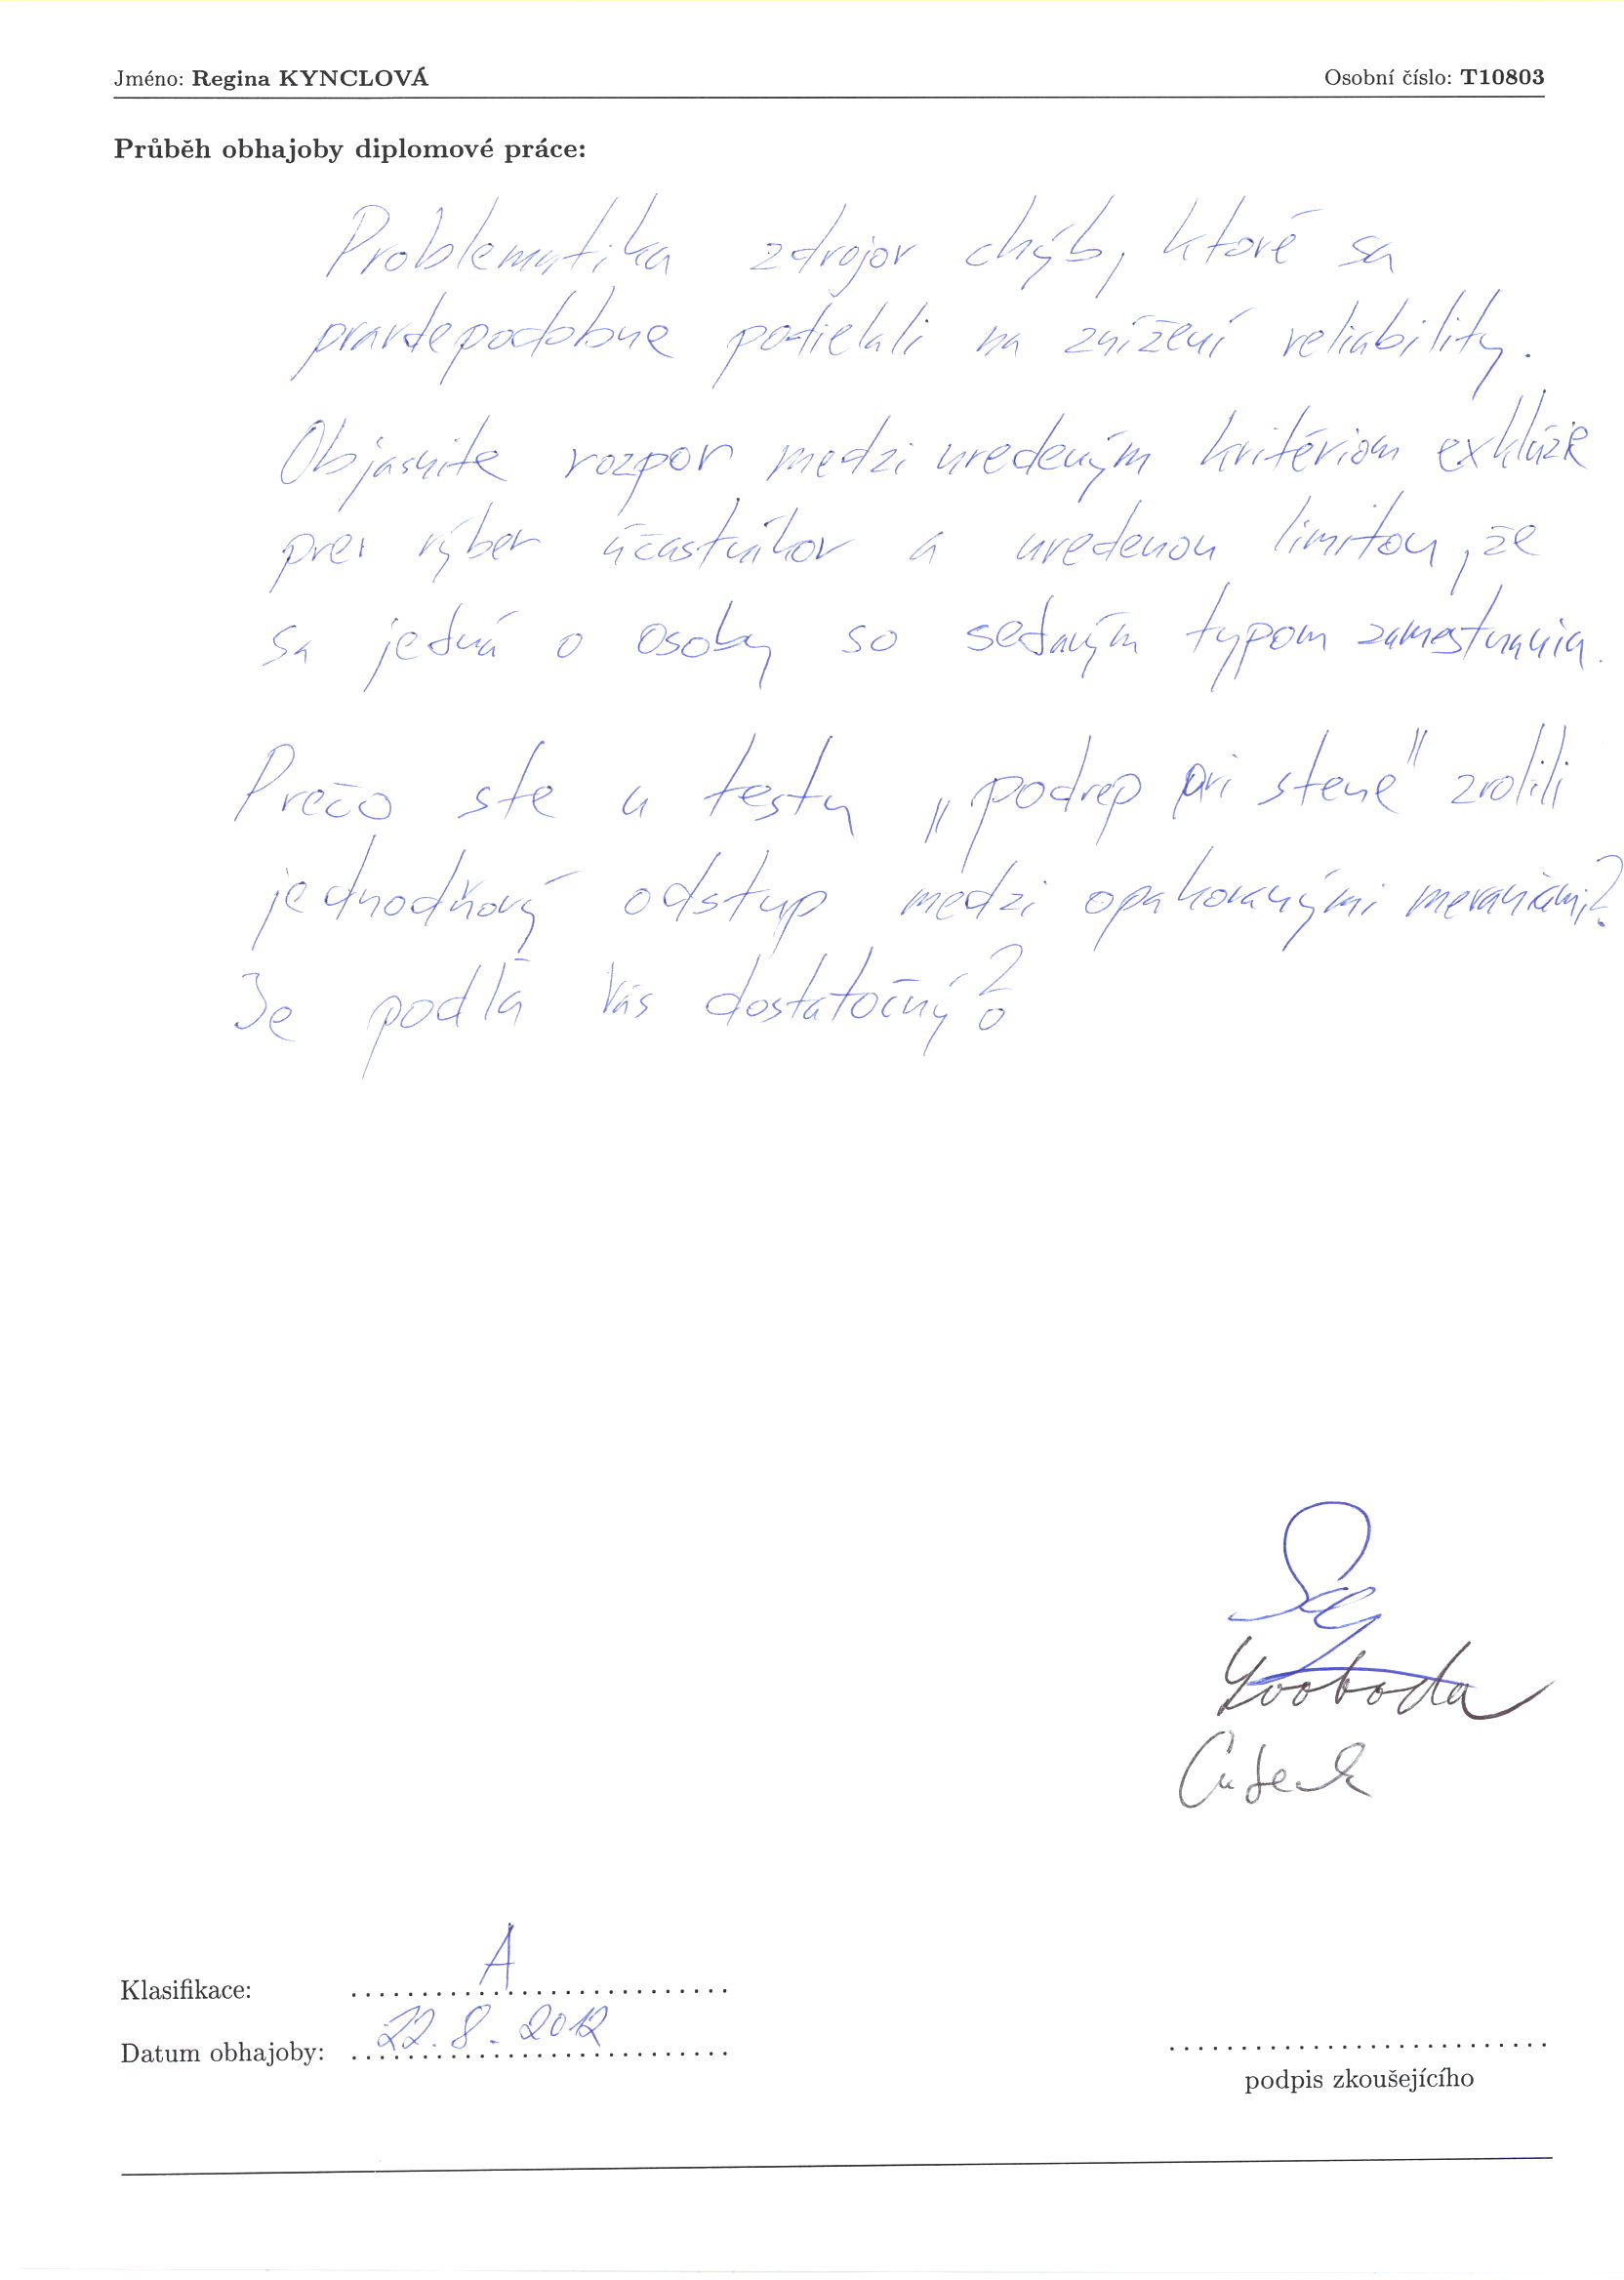 Jméno: Regina KYNCLOVÁ Osobní číslo: T10803
Průběh obhajoby diplomové práce:
Problematika zdrojov chýb, ktoré sa
pravdepodobne podielali na znížení reliability.
Objasnite rozpor medzi uvedeným kritériom exklúzie
pre výber účastníkov a uvedenou limitou, že
sa jedná o osoby so sedavým typom zamestnania.
Prečo ste u testu „podrep pri stene" zvolili
jednodňový odstup medzi opakovanými meraniami?
Je podľa Vás dostatočný?
Svoboda
Klasifikace: A
Datum obhajoby: 22.8.2012
podpis zkoušejícího